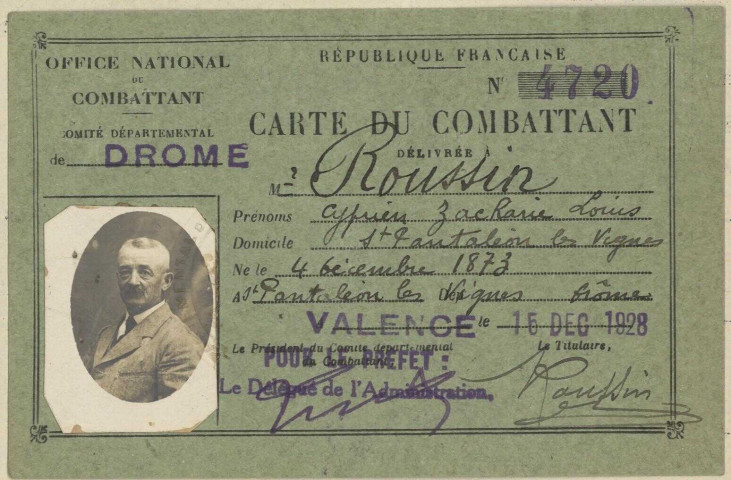 OFFICE NATIONAL
DU
COMBATTANT
COMITÉ DÉPARTEMENTAL
de DROME
RÉPUBLIQUE FRANCAISE
N° 4720
CARTE DU COMBATTANT
DÉLIVRÉE À
Mr Roussin
Prénoms Cyprien Zacharie Louis
Domicile St Pantaléon les Vignes
Né le 4 décembre 1873
A St Pantaléon les Vignes Drôme
VALENCE le 15 DEC 1928
Le Président du Comité départemental
du Combattant,
POUR LE PREFET :
Le Délégué de l'Administration,
Le Titulaire,
Roussin